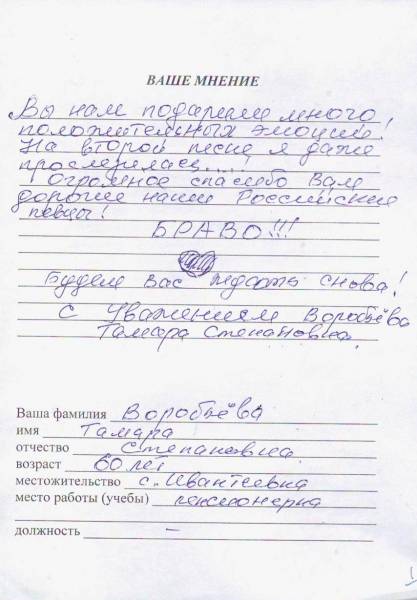 ВАШЕ МНЕНИЕ
Вы нам подарили много
положительных эмоций!
На второй песне я даже
прослезилась....!
Огромное спасибо Вам
дорогие наши Российские
певцы!
БРАВО!!!
Будем вас ждать снова!
С уважением Воробьёва
Тамара Степановна.
Ваша фамилия Воробьёва
имя Тамара
отчество Степановна
возраст 60 лет
местожительство с. Ивантеевка
место работы (учебы) пенсионерка
должность –